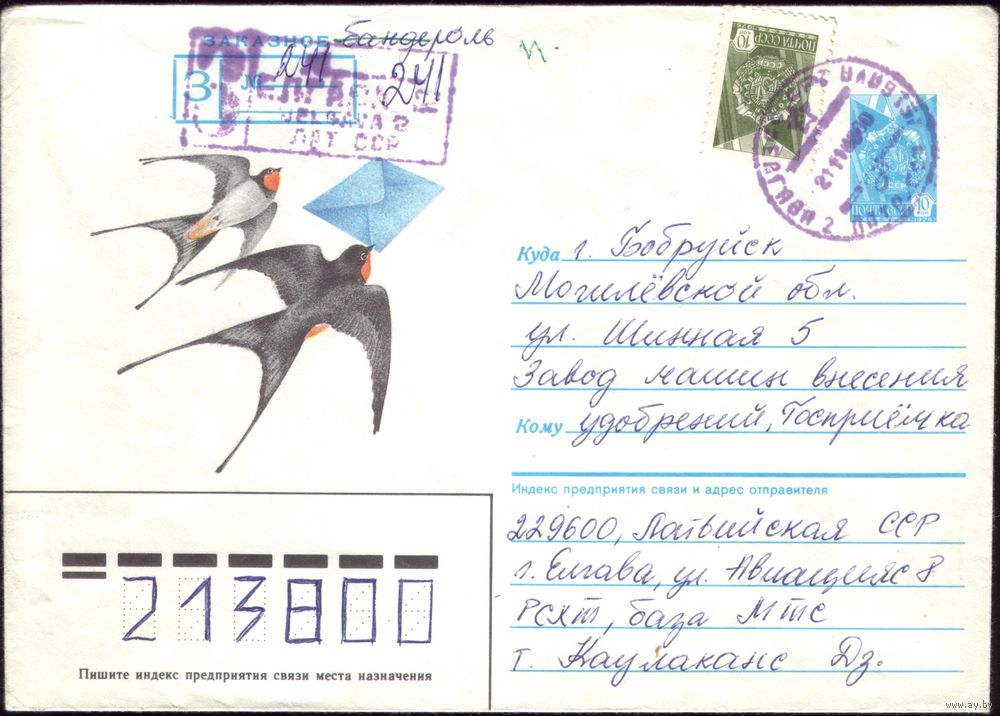 ЗАКАЗНОЕ бандероль
З № 241
241
JELGAVA 2
ЛАТ ССР
И.
10 КОП
ПОЧТА СССР
1976
ЕЛГАВА 2
ПОЧТА СССР 10 КОП
1976
Куда г. Бобруйск
Могилёвской обл.
ул. Шинная 5
Завод машин внесения
Кому удобрений, Госприёмка
Индекс предприятия связи и адрес отправителя
229600, Латвийская ССР
г. Елгава, ул. Авиацияс 8
РСХТ, база МТС
т. Каулаканс Дз.
213800
Пишите индекс предприятия связи места назначения
www.ay.by